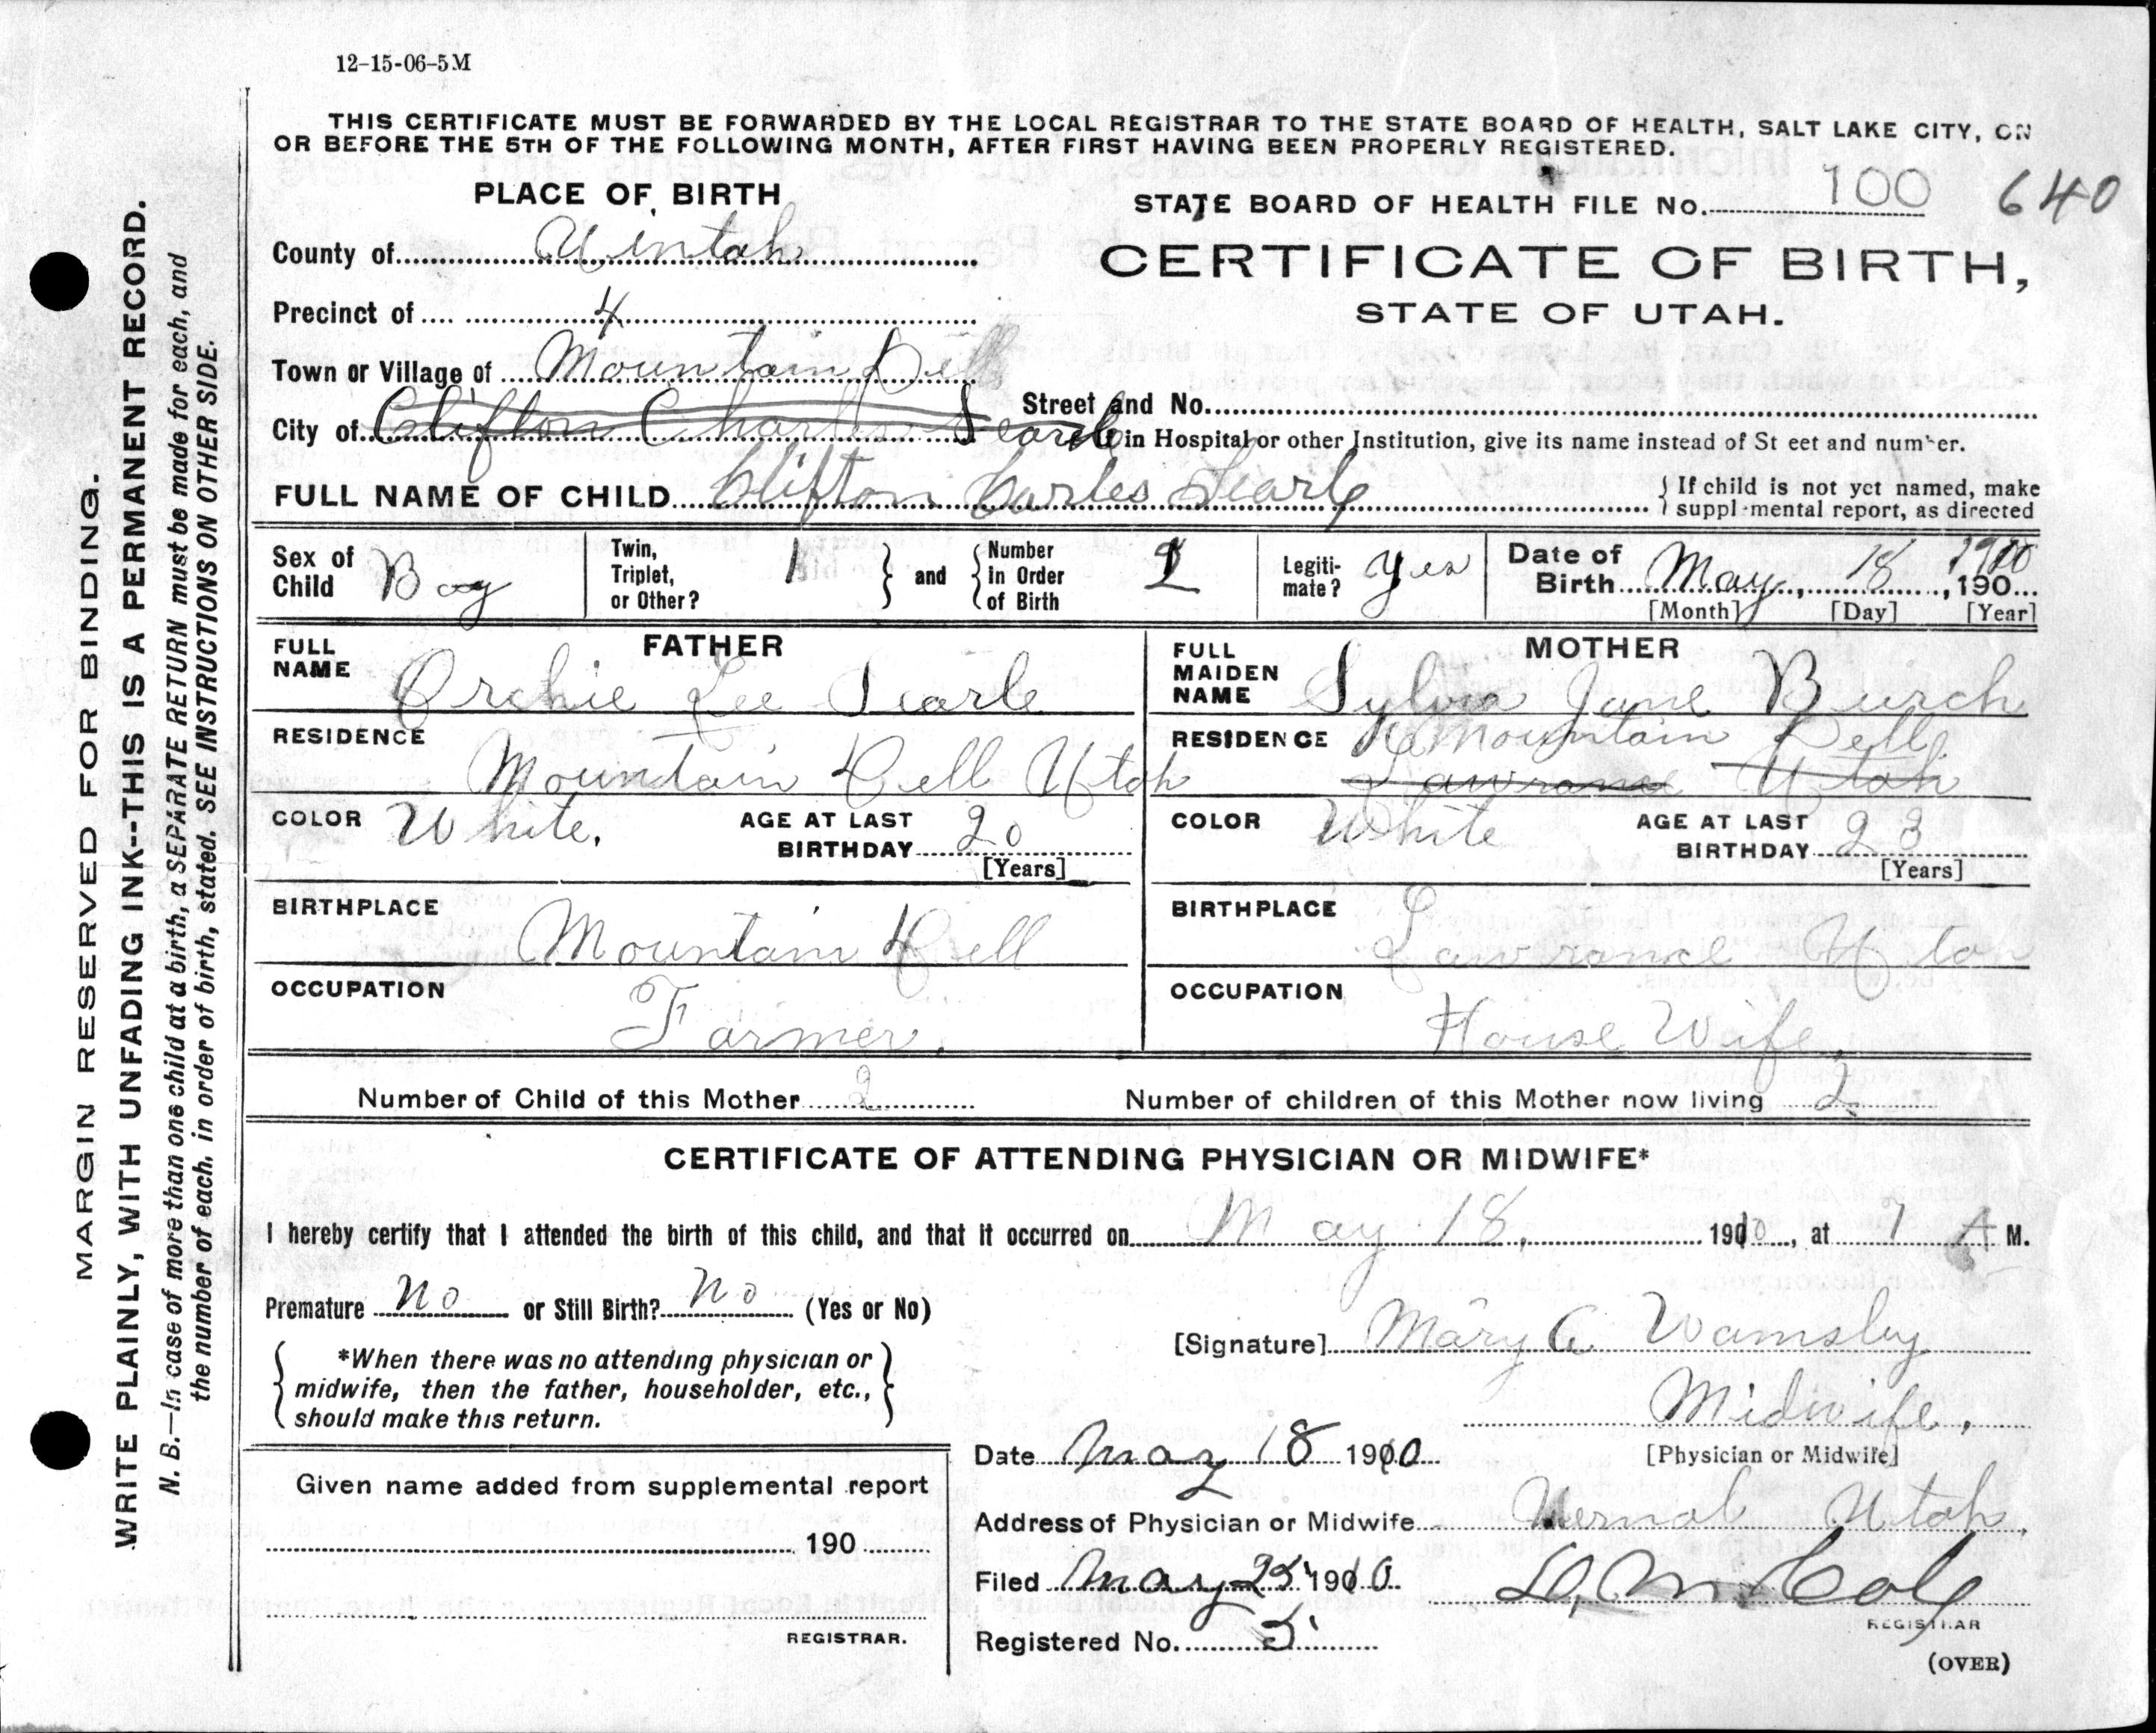 12-15-06-5M
THIS CERTIFICATE MUST BE FORWARDED BY THE LOCAL REGISTRAR TO THE STATE BOARD OF HEALTH, SALT LAKE CITY, ON
OR BEFORE THE 5TH OF THE FOLLOWING MONTH, AFTER FIRST HAVING BEEN PROPERLY REGISTERED.
PLACE OF BIRTH
STATE BOARD OF HEALTH FILE No. 100 640
County of Uintah
CERTIFICATE OF BIRTH,
Precinct of 4
STATE OF UTAH.
Town or Village of Mountain Dell
Street and No.
City of Clifton Charles Searle
If in Hospital or other Institution, give its name instead of St eet and num er.
FULL NAME OF CHILD Clifton Carles Searle
If child is not yet named, make
suppl mental report, as directed
Sex of Child Boy
Twin, Triplet, or Other? 1
and
Number in Order of Birth
Legiti-mate? Yes
Date of Birth May 18 1910, 190
[Month] [Day] [Year]
FATHER
FULL NAME Orchie Lee Searle
MOTHER
FULL MAIDEN NAME Sylvia Jane Burch
RESIDENCE Mountain Dell Utah
RESIDENCE Mountain Dell
Lawrance Utah
COLOR White.
AGE AT LAST BIRTHDAY 20
[Years]
COLOR White
AGE AT LAST BIRTHDAY 23
[Years]
BIRTHPLACE Mountain Dell
BIRTHPLACE Lawrance Utah
OCCUPATION Farmer.
OCCUPATION House Wife.
Number of Child of this Mother 2
Number of children of this Mother now living 2
CERTIFICATE OF ATTENDING PHYSICIAN OR MIDWIFE*
I hereby certify that I attended the birth of this child, and that it occurred on May 18, 1910, at 1 A M.
Premature No or Still Birth? No (Yes or No)
[Signature] Mary A Wamsley
*When there was no attending physician or
midwife, then the father, householder, etc.,
should make this return.
Midwife.
[Physician or Midwife]
Date May 18 1910
Given name added from supplemental report
190
Address of Physician or Midwife Vernal Utah.
Filed May 25 1910
Cole
REGISTRAR
REGISTRAR.
Registered No. 5
(OVER)
MARGIN RESERVED FOR BINDING.
WRITE PLAINLY, WITH UNFADING INK--THIS IS A PERMANENT RECORD.
N. B.—In case of more than one child at a birth, a SEPARATE RETURN must be made for each, and
the number of each, in order of birth, stated. SEE INSTRUCTIONS ON OTHER SIDE.